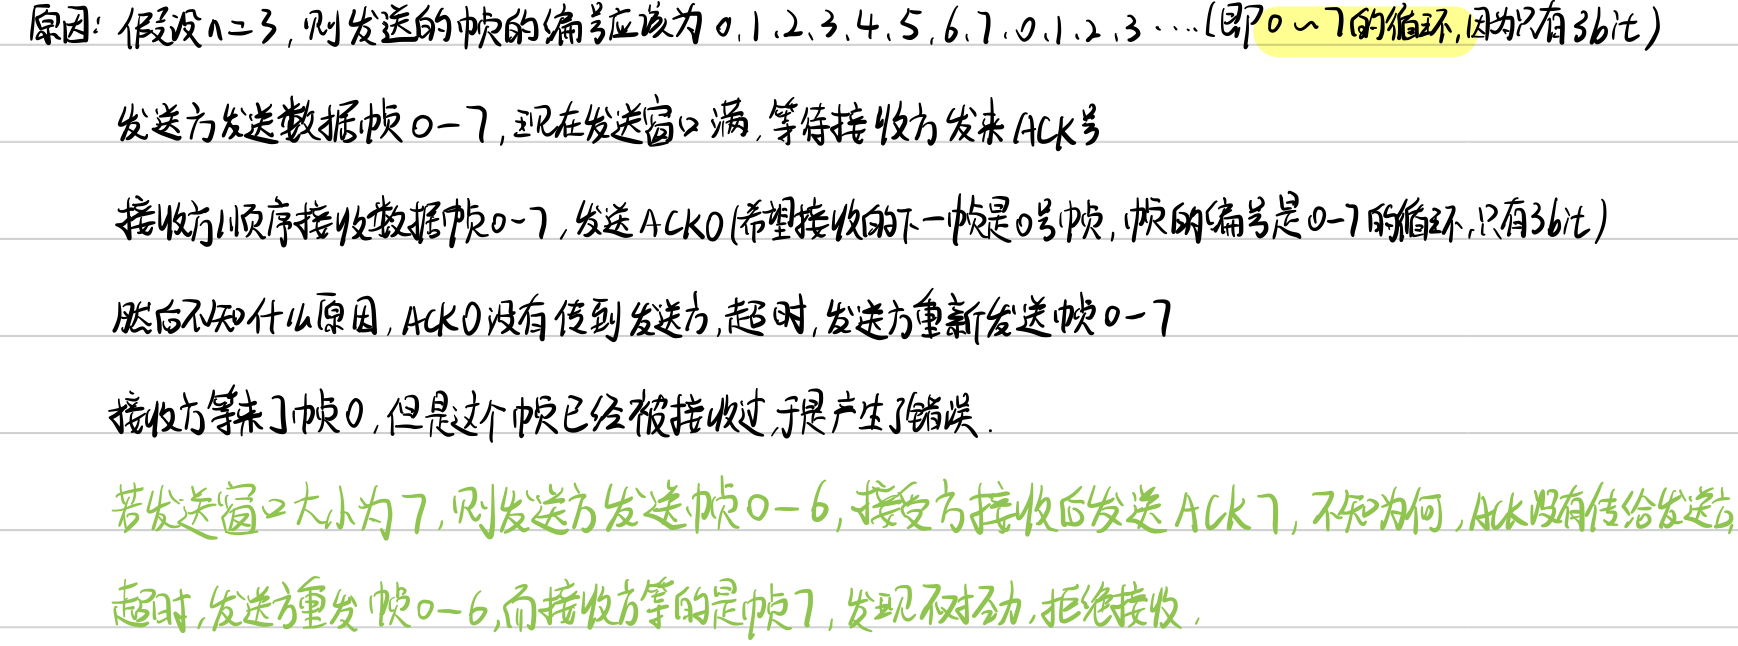 原因: 假设n=3,则发送的帧的编号应该为0.1.2.3.4.5.6.7.0.1.2.3····(即0~7的循环,因为只有3bit)
发送方发送数据帧0-7,现在发送窗口满,等待接收方发来ACK号
接收方顺序接收数据帧0-7,发送ACK0(希望接收的下一帧是0号帧,帧的编号是0-7的循环,只有3bit)
然后不知什么原因,ACK0没有传到发送方,超时,发送方重新发送帧0-7
接收方等来了帧0,但是这个帧已经被接收过,于是产生了错误.
若发送窗口大小为7,则发送方发送帧0-6,接受方接收后发送ACK7,不知为何,ACK没有传给发送方,
超时,发送方重发帧0-6,而接收方等的是帧7,发现不对劲,拒绝接收,